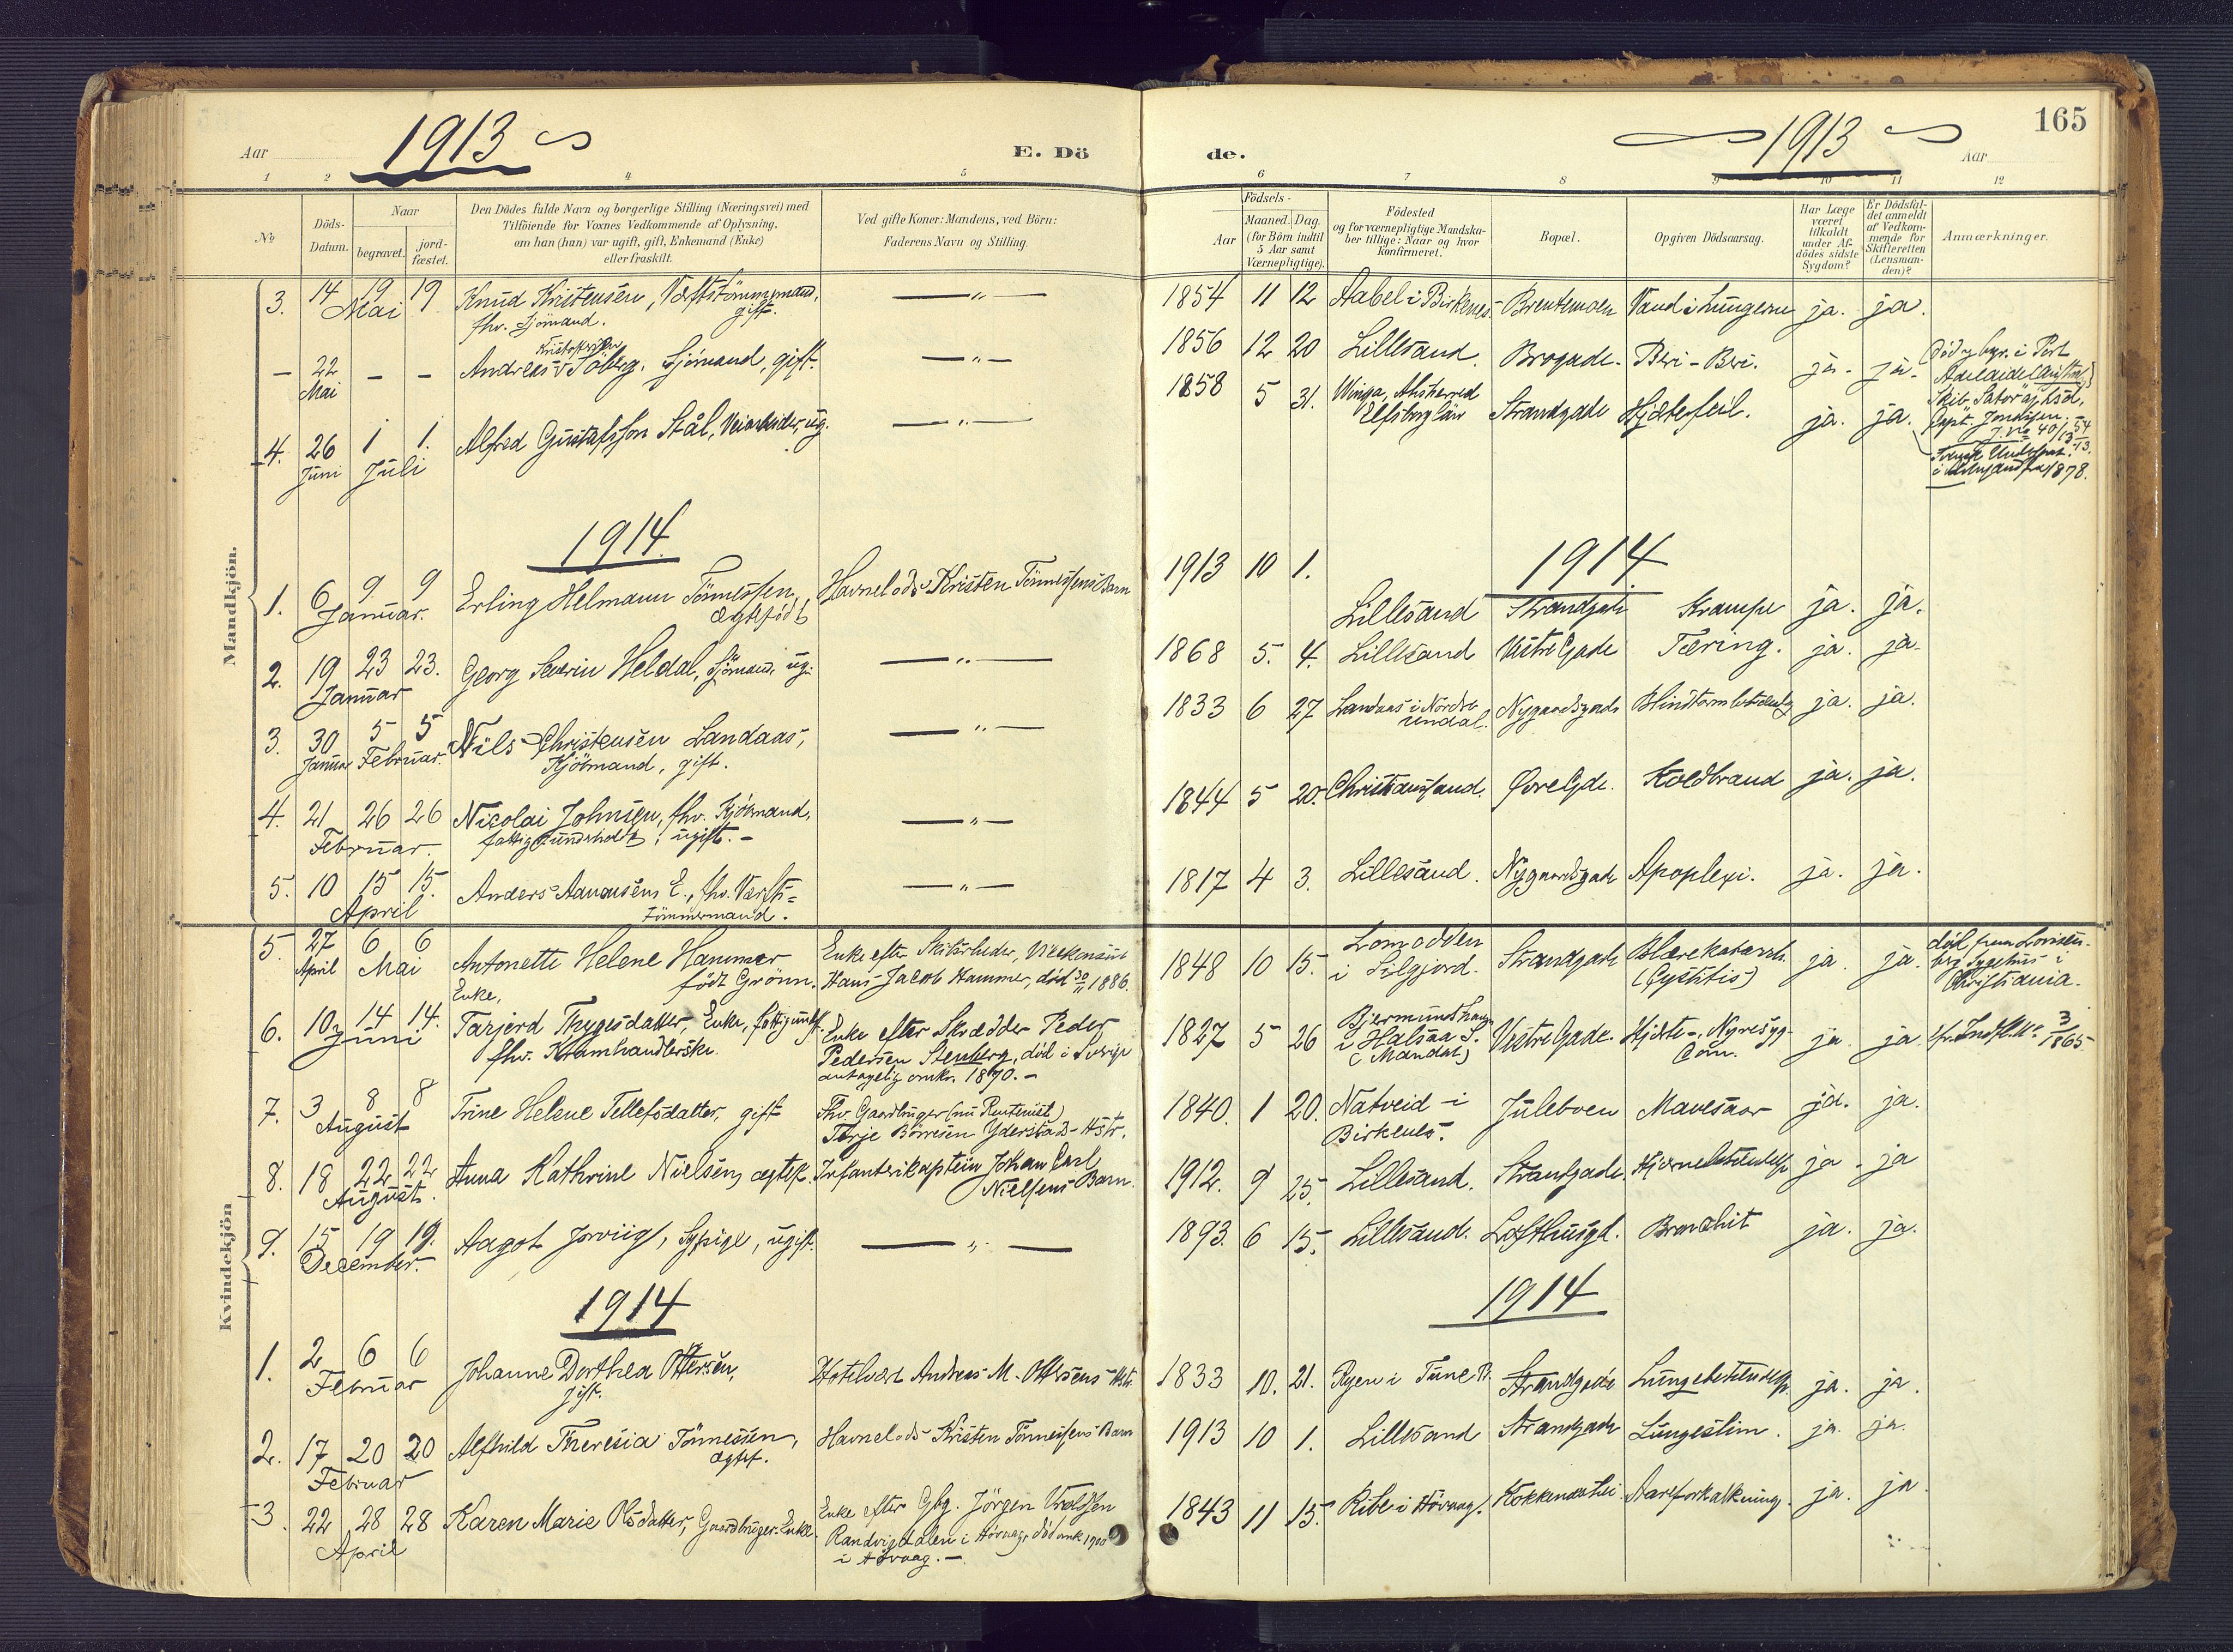 1913
Aar
E. Dö
de.
1913
Aar
165
1 2 4 5 6 7 8 9 10 11 12
No
Döds-
Datum.
Naar
begravet.
jord-
fæstet.
Den Dödes fulde Navn og borgerlige Stilling (Næringsvei) med
Tilföiende for Voxnes Vedkommende af Oplysning,
om han (hun) var ugift, gift, Enkemand (Enke)
eller fraskilt.
Ved gifte Koner: Mandens, ved Börn:
Faderens Navn og Stilling.
Födsels-
Aar
Maaned. Dag.
(for Börn indtil
5 Aar samt
Værnepligtige).
Födested
og for værnepligtige Mandska-
ber tillige: Naar og hvor
konfirmeret.
Bopæl.
Opgiven Dödsaarsag.
Har Læge
været
tilkaldt
under Af-
dödes sidste
Sygdom?
Er Dödsfal-
det anmeldt
af Vedkom-
mende for
Skifteretten
(Lensman-
den)?
Anmærkninger.
Mandkjön.
3. 14 19 19 Knud Kristensen, Værftstömmermand, — " — 1854 11 12 Aabel i Birkenes. Brentemoen Vand i Lungerne ja. ja.
Mai fhv. Sjömand. gift.
Kristoffer
– 22 – – Andreas Söberg. Sjömand, gift. — " — 1856 12 20 Lillesand. Brogade. Beri-Beri. ja. ja.
Mai
Död og begr. i Port
Adelaide (Austral.)
Skib
Capt.
J. No 40/13
4. 26 1 1. Alfred Gustafsson Stål, Veiarbeider, ug. — " — 1858 5 31. Winga, Elfsborg län Strandgade Hjertefeil. ja. ja.
Juni Juli
Svensk
i fra 1878.
1914
1914
1. 6 9 9 Erling Helmann Tönnessen, Havnelods Kristen Tönnessens Barn 1913 10 1. Lillesand Strandgade Krampe ja. ja.
Januar. ægtefödt
2. 19 23 23. Georg Severin Heldal, Sjömand, ug. — " — 1868 5. 4. Lillesand Vestre Gade Tæring. ja. ja.
Januar
3. 30 5 5 Nils Christensen Landaas, — " — 1833 6 27 Landaas i Nordre Undal. Nygaardsgade ja. ja.
Januar Februar. Kjöbmand, gift.
4. 21 26 26 Nicolai Johnsen, fhv. Kjöbmand, — " — 1844 5 20. Christiansand. Øvre Gde. Koldbrand ja. ja.
Februar. fattigunderholdt, ugift. –
5. 10 15 15. Anders Aanonsen E., fhv. Værfts- — " — 1817 4 3. Lillesand. Nygaardsgade Apoplexi. ja. ja.
April tömmermand.
Kvindekjön
5. 27 6 6 Antonette Helene Hammer
April Mai född Grönn.
Enke,
Enke efter
Hans Jacob Hammer, död 1886.
1848 10 15. Lomodden
i Silgjord. Strandgade Blærekatarrh
(Cystitis) ja. ja.
död paa Lovisen-
berg Sygehus i
Christiania.
6. 10 14 14. Tarjerd Thygesdatter, Enke, fattigundh.
Juni fhv. Kramhandlerske.
Enke efter Skrædder Peder
Pedersen Stenberg, död i Sverige
antagelig omkr. 1870. –
1827 5 26
i Halsaa S.
(Mandal) Vestre Gade. Hjerte-, Nyresyg-
dom. ja. ja. cfr. Indfl. No. 3/1865
7. 3 8 8 Trine Helene Tellefsdatter, gift
August
Fhv. Gaardbruger (nu Rentenist)
Terje Börresen Yderstad-Hstr.
1840. 1 20. Natveid i
Birkenes. Juleboen Mavesaar ja. ja.
8. 18 22 22 Anna Kathrine Nielsen, ægtef.
August.
Infanterikaptein Johan Carl
Nielsens Barn.
1912. 9 25. Lillesand. Strandgade Hjernebetændelse ja. ja
9. 15 19 19. Aagot Jorviig, Sypige, ugift. — " — 1893. 6 15. Lillesand. Lofthusgd. Bronchit ja. ja.
December.
1914
1914
1. 2 6 6 Johanne Dorthea Ottersen, Hotelvært Andreas M. Ottersens Hstr. 1833 10. 21. Ryen i Tune B. Strandgade Lungebetændelse ja. ja.
Februar gift.
2. 17 20 20 Alfhild Theresia Tönnessen, Havnelods Kristen Tönnessens Barn 1913 10 1. Lillesand Strandgade Lungeslim. ja. ja.
Februar ægtef.
3. 22 28 28 Karen Marie Olsdatter, Gaardbruger Enke.
April
Enke efter Gbg. Jörgen
Randvigdalen i Hövaag, död omk 1900
i Hövaag. –
1843 11 15. Ribe i Hövaag. Kokkenes Hei. Aareforkalkning. ja. ja